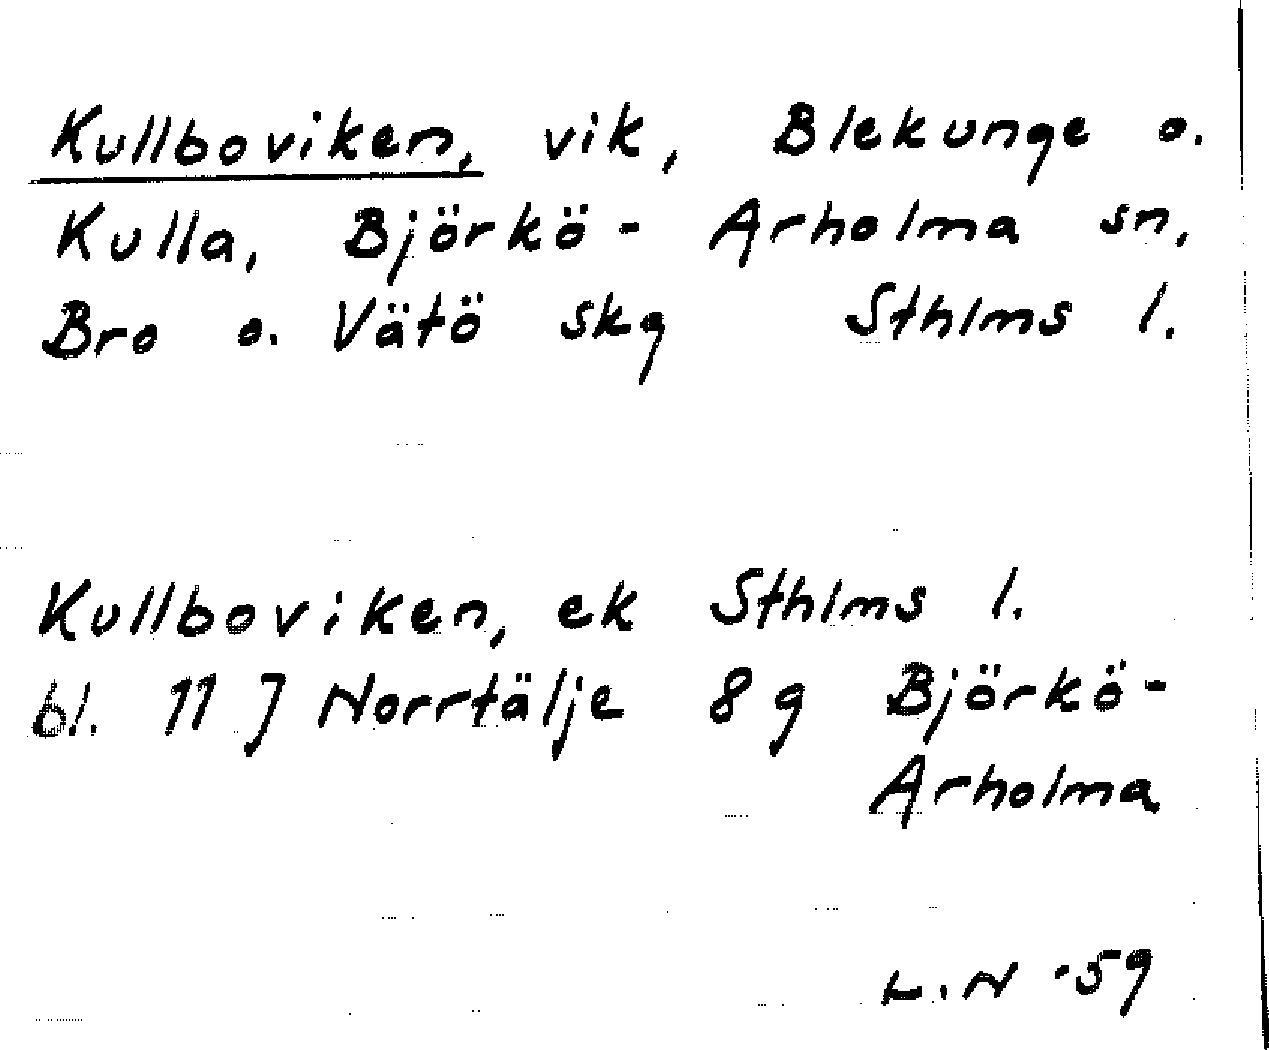 Kullboviken, vik, Blekunge o.
Kulla, Björkö- Arholma sn,
Bro o. Vätö skg Sthlms l.
Kullboviken, ek Sthlms l.
bl. 11 J Norrtälje 8 g Björkö-
Arholma
L.N -59